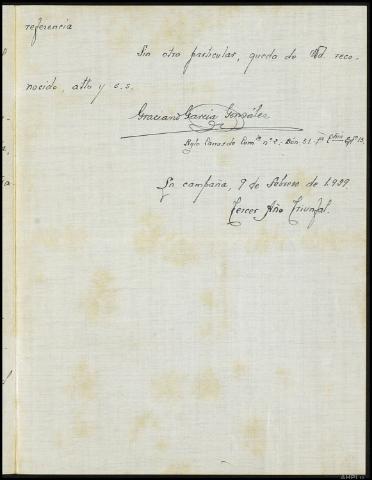 referencia
Sin otro particular, queda de Vd. reco-
nocido, atto y s.s.
Graciano Garcia Gonzalez
Rgto Carros de Comte nº 2.- Bón. 51.- 1ª
En campaña, 9 de febrero de 1.939.
Tercer Año Triunfal.